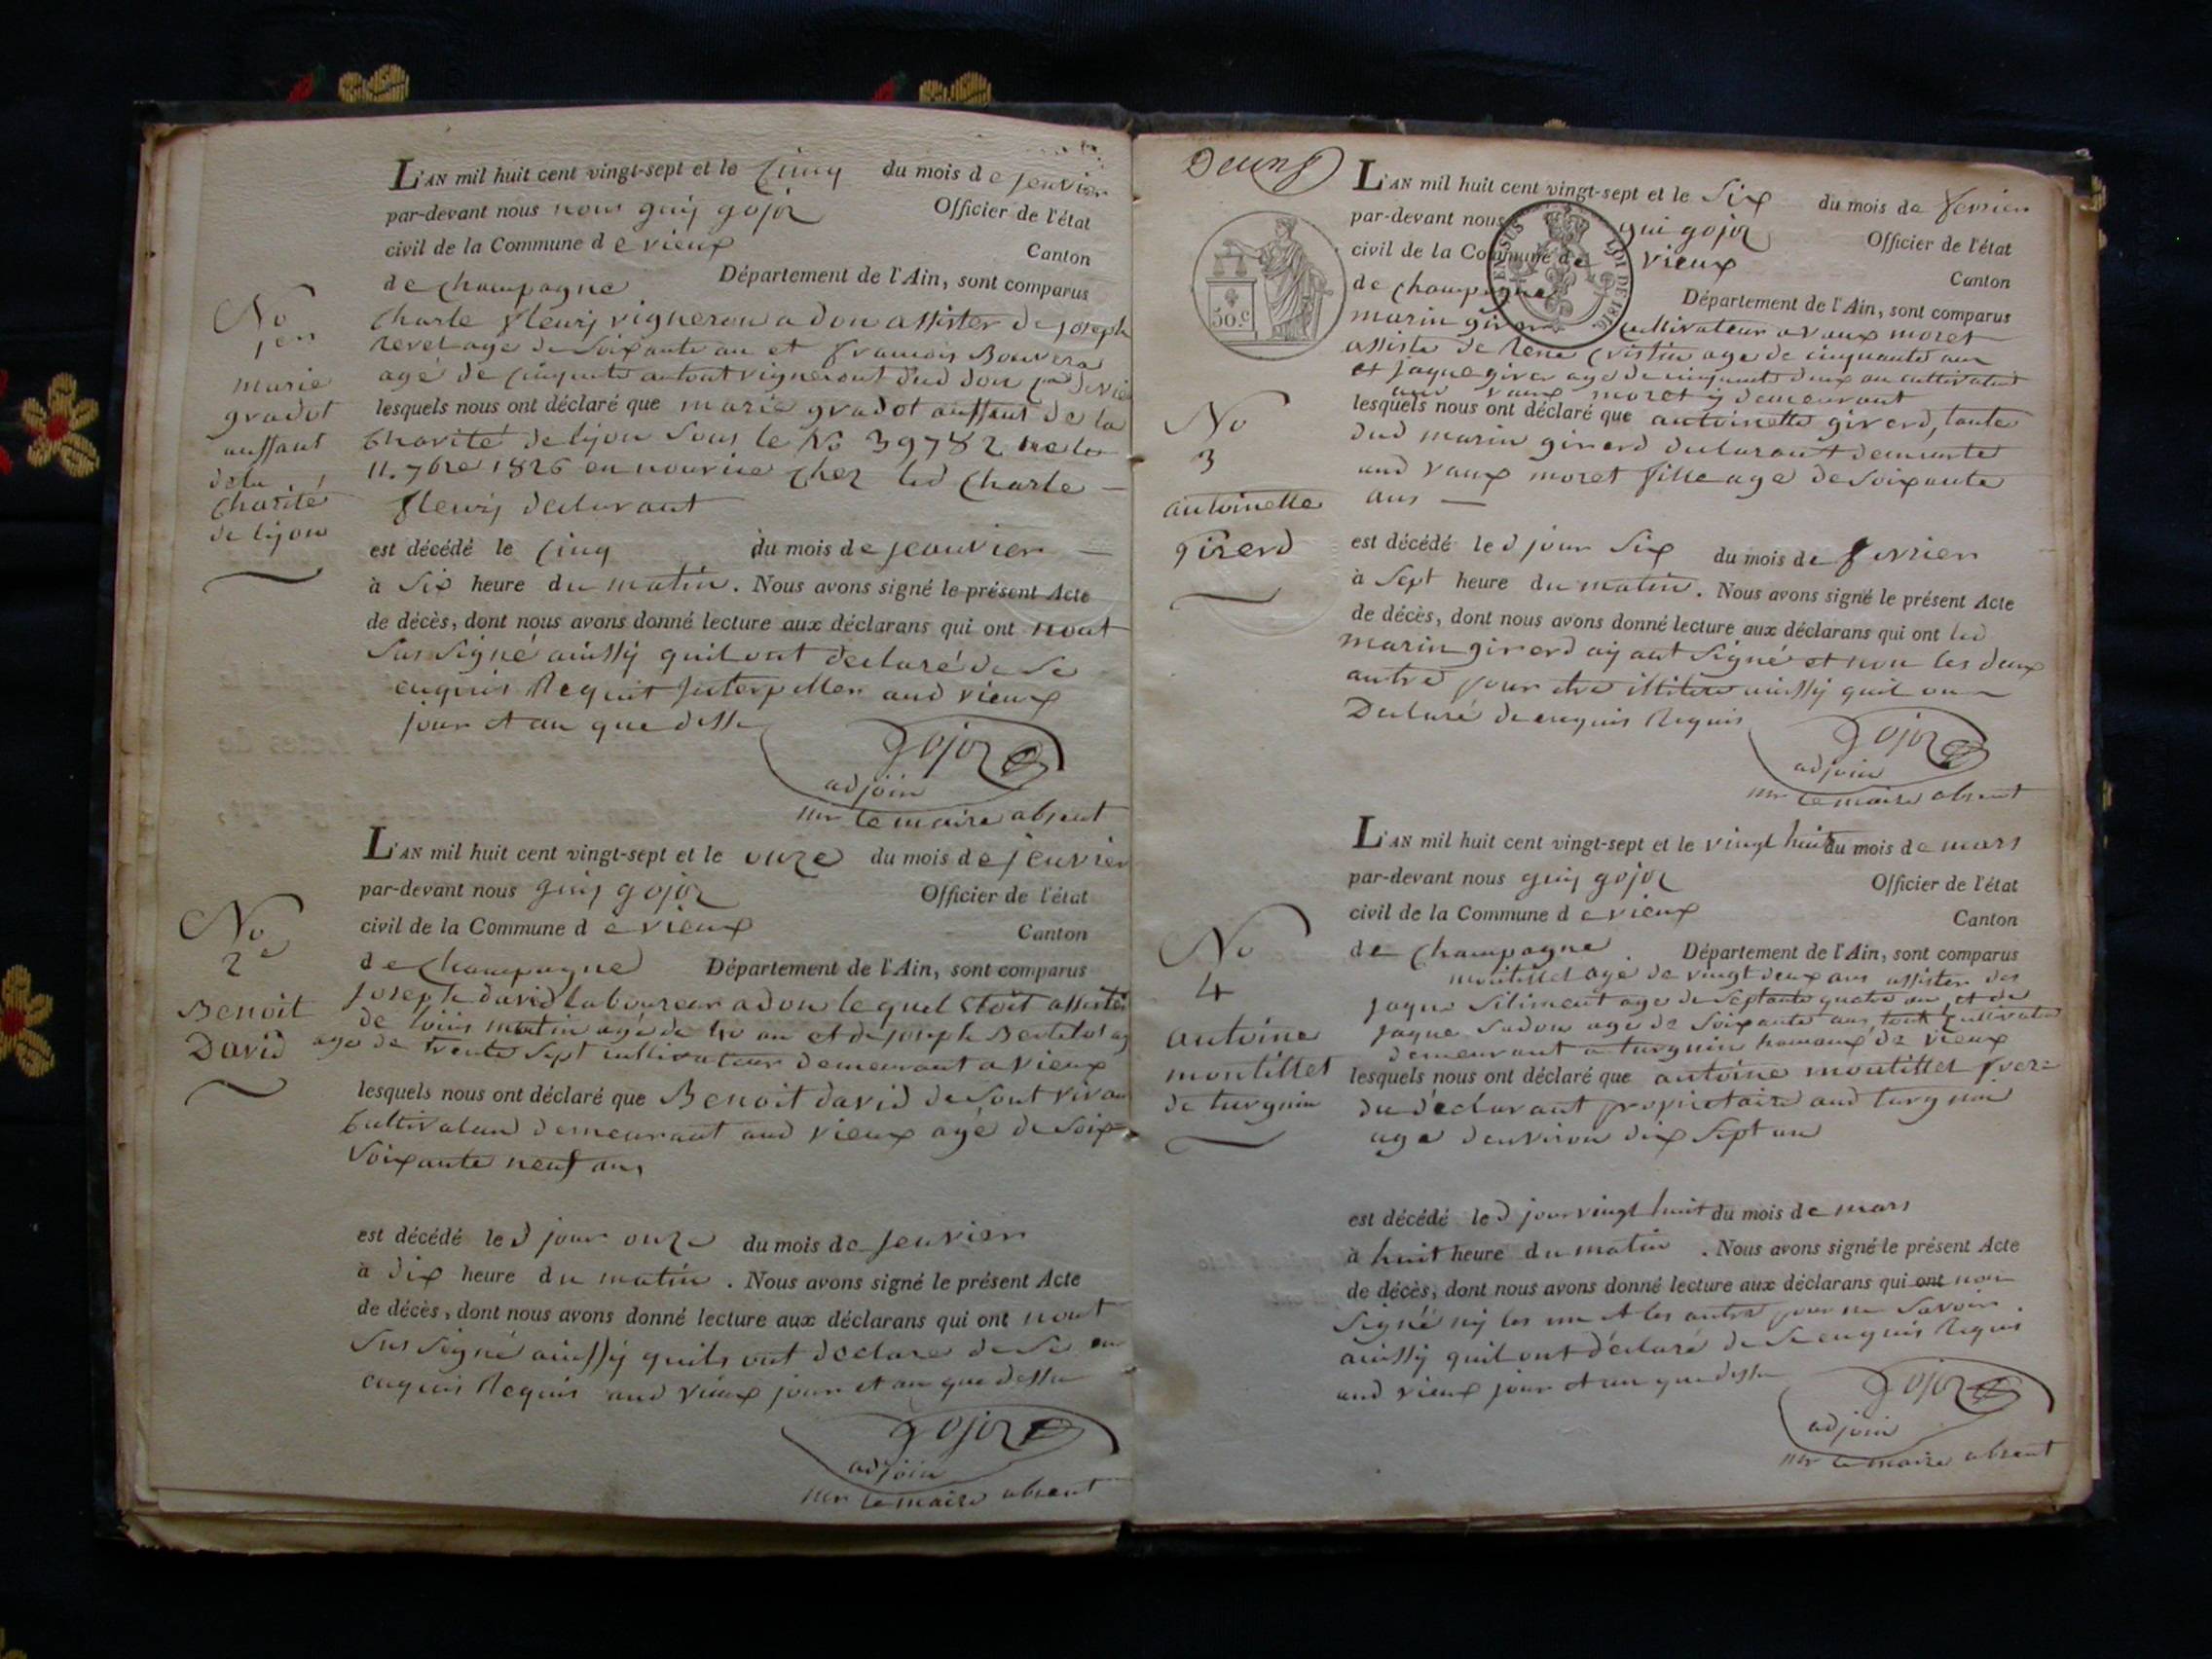 L'AN mil huit cent vingt-sept et le cinq du mois de jenvier
par-devant nous nous guij gojoz Officier de l'état
civil de la Commune de vieux Canton
de champagne Département de l'Ain, sont comparus
No
1er
marie
gradot
anffant
dela
charité
de lijon
charle fleurij vigneron a don assister de joseph
revel age de soixante an et francois Bouvera
agé de cinquante an tout vigneront dud don
lesquels nous ont déclaré que marie gradot anffant de la
charité de lijon sous le No 39782 nee le
11. 7bre 1826 en nourice chez led charle
fleurij declarant
est décédé le cinq du mois de jeanvier
à six heure du matin. Nous avons signé le présent Acte
de décès, dont nous avons donné lecture aux déclarans qui ont nont
sus signé ainssij quil ont declaré de se
enquis Requit Interpeller aud vieux
jour et an que dessu
gojoz
adjoin
mr le maire absent
L'AN mil huit cent vingt-sept et le onze du mois de jenvier
par-devant nous guij gojoz Officier de l'état
civil de la Commune de vieux Canton
de champagne Département de l'Ain, sont comparus
No
2e
Benoit
David
joseph david laboureur a don le quel etoit assister
de loüis martin agé de an et de joseph Bertelot
age de trente sept cultivateur demeurant a vieux
lesquels nous ont déclaré que Benoit david de sont vivan
cultivateur demeurant aud vieux agé de soix
soixante neuf ans
est décédé led jour onze du mois de jenvier
à dix heure du matin. Nous avons signé le présent Acte
de décès, dont nous avons donné lecture aux déclarans qui ont nont
sus signé ainssij quils ont declare de se en
enquis Requis aud vieux jour et an que dessu
gojoz
adjoin
mr le maire absent
Deuns
L'AN mil huit cent vingt-sept et le six du mois de fevrier
par-devant nous gui gojoz Officier de l'état
civil de la Commune de vieux Canton
de champagne Département de l'Ain, sont comparus
50.c
EN SUS
LOI DE 1816.
No
3
antoinette
girerd
marin girerd cultivateur a vaux moret
assiste de rene cristin age de cinquante an
et jaque girer age de cinquante deux an cultivateur
aud vaux moret ij demeurant
lesquels nous ont déclaré que antoinette girerd, tante
dud marin girerd declarant demeurte
aud vaux moret fille age de soixante
ans
est décédé led jour six du mois de fevrier
à sept heure du matin. Nous avons signé le présent Acte
de décès, dont nous avons donné lecture aux déclarans qui ont led
marin girerd aijant signé et non les deux
autre pour etre illitere ainssij quil on
Declaré de enquis Requis
gojoz
adjoin
mr le maire absent
L'AN mil huit cent vingt-sept et le vingt huit du mois de mars
par-devant nous guij gojoz Officier de l'état
civil de la Commune de vieux Canton
de champagne. Département de l'Ain, sont comparus
No
4
antoine
montillet
de turgnin
montillet age de vingt deux ans assister des
jaque siliment age de septante quatre an et de
jaque sudon age de soixante ans, tout cultivateu
demeurant a turgnin hamaux de vieux
lesquels nous ont déclaré que antoine montillet frer
du déclarant propriétaire aud turgnin
age denviron dix sept an
est décédé led jour vingt huit du mois de mars
à huit heure du matin. Nous avons signé le présent Acte
de décès, dont nous avons donné lecture aux déclarans qui ont non
signé nij les un et les autre pour ne savoir
ainssij quil ont déclaré de se enquis Requis
aud vieux jour et an que dessu
gojoz
adjoin
mr le maire absent